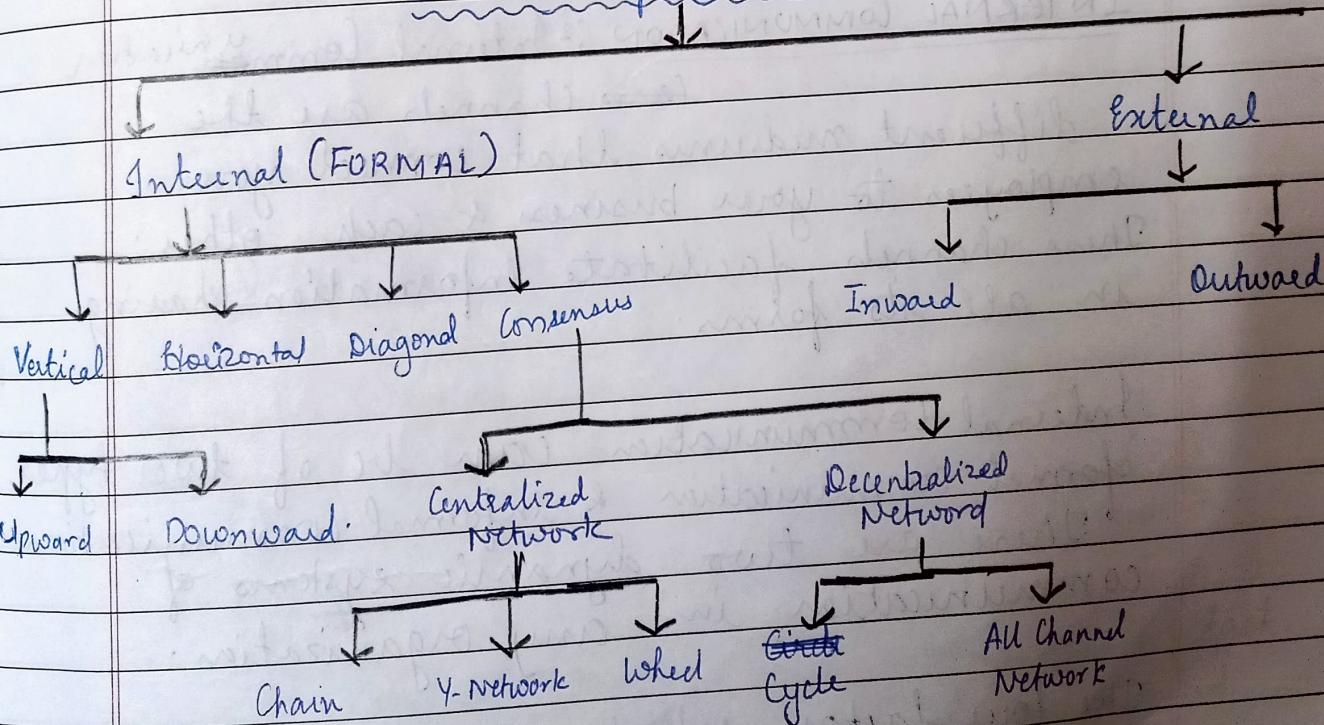 External
Internal (FORMAL)
Inward
Outward
Vertical
Horizontal
Diagonal
Consensus
Upward
Downward.
Centralized
Network
Decentralized
Netword
Chain
Y-Network
Wheel
Cycle
All Channel
Network